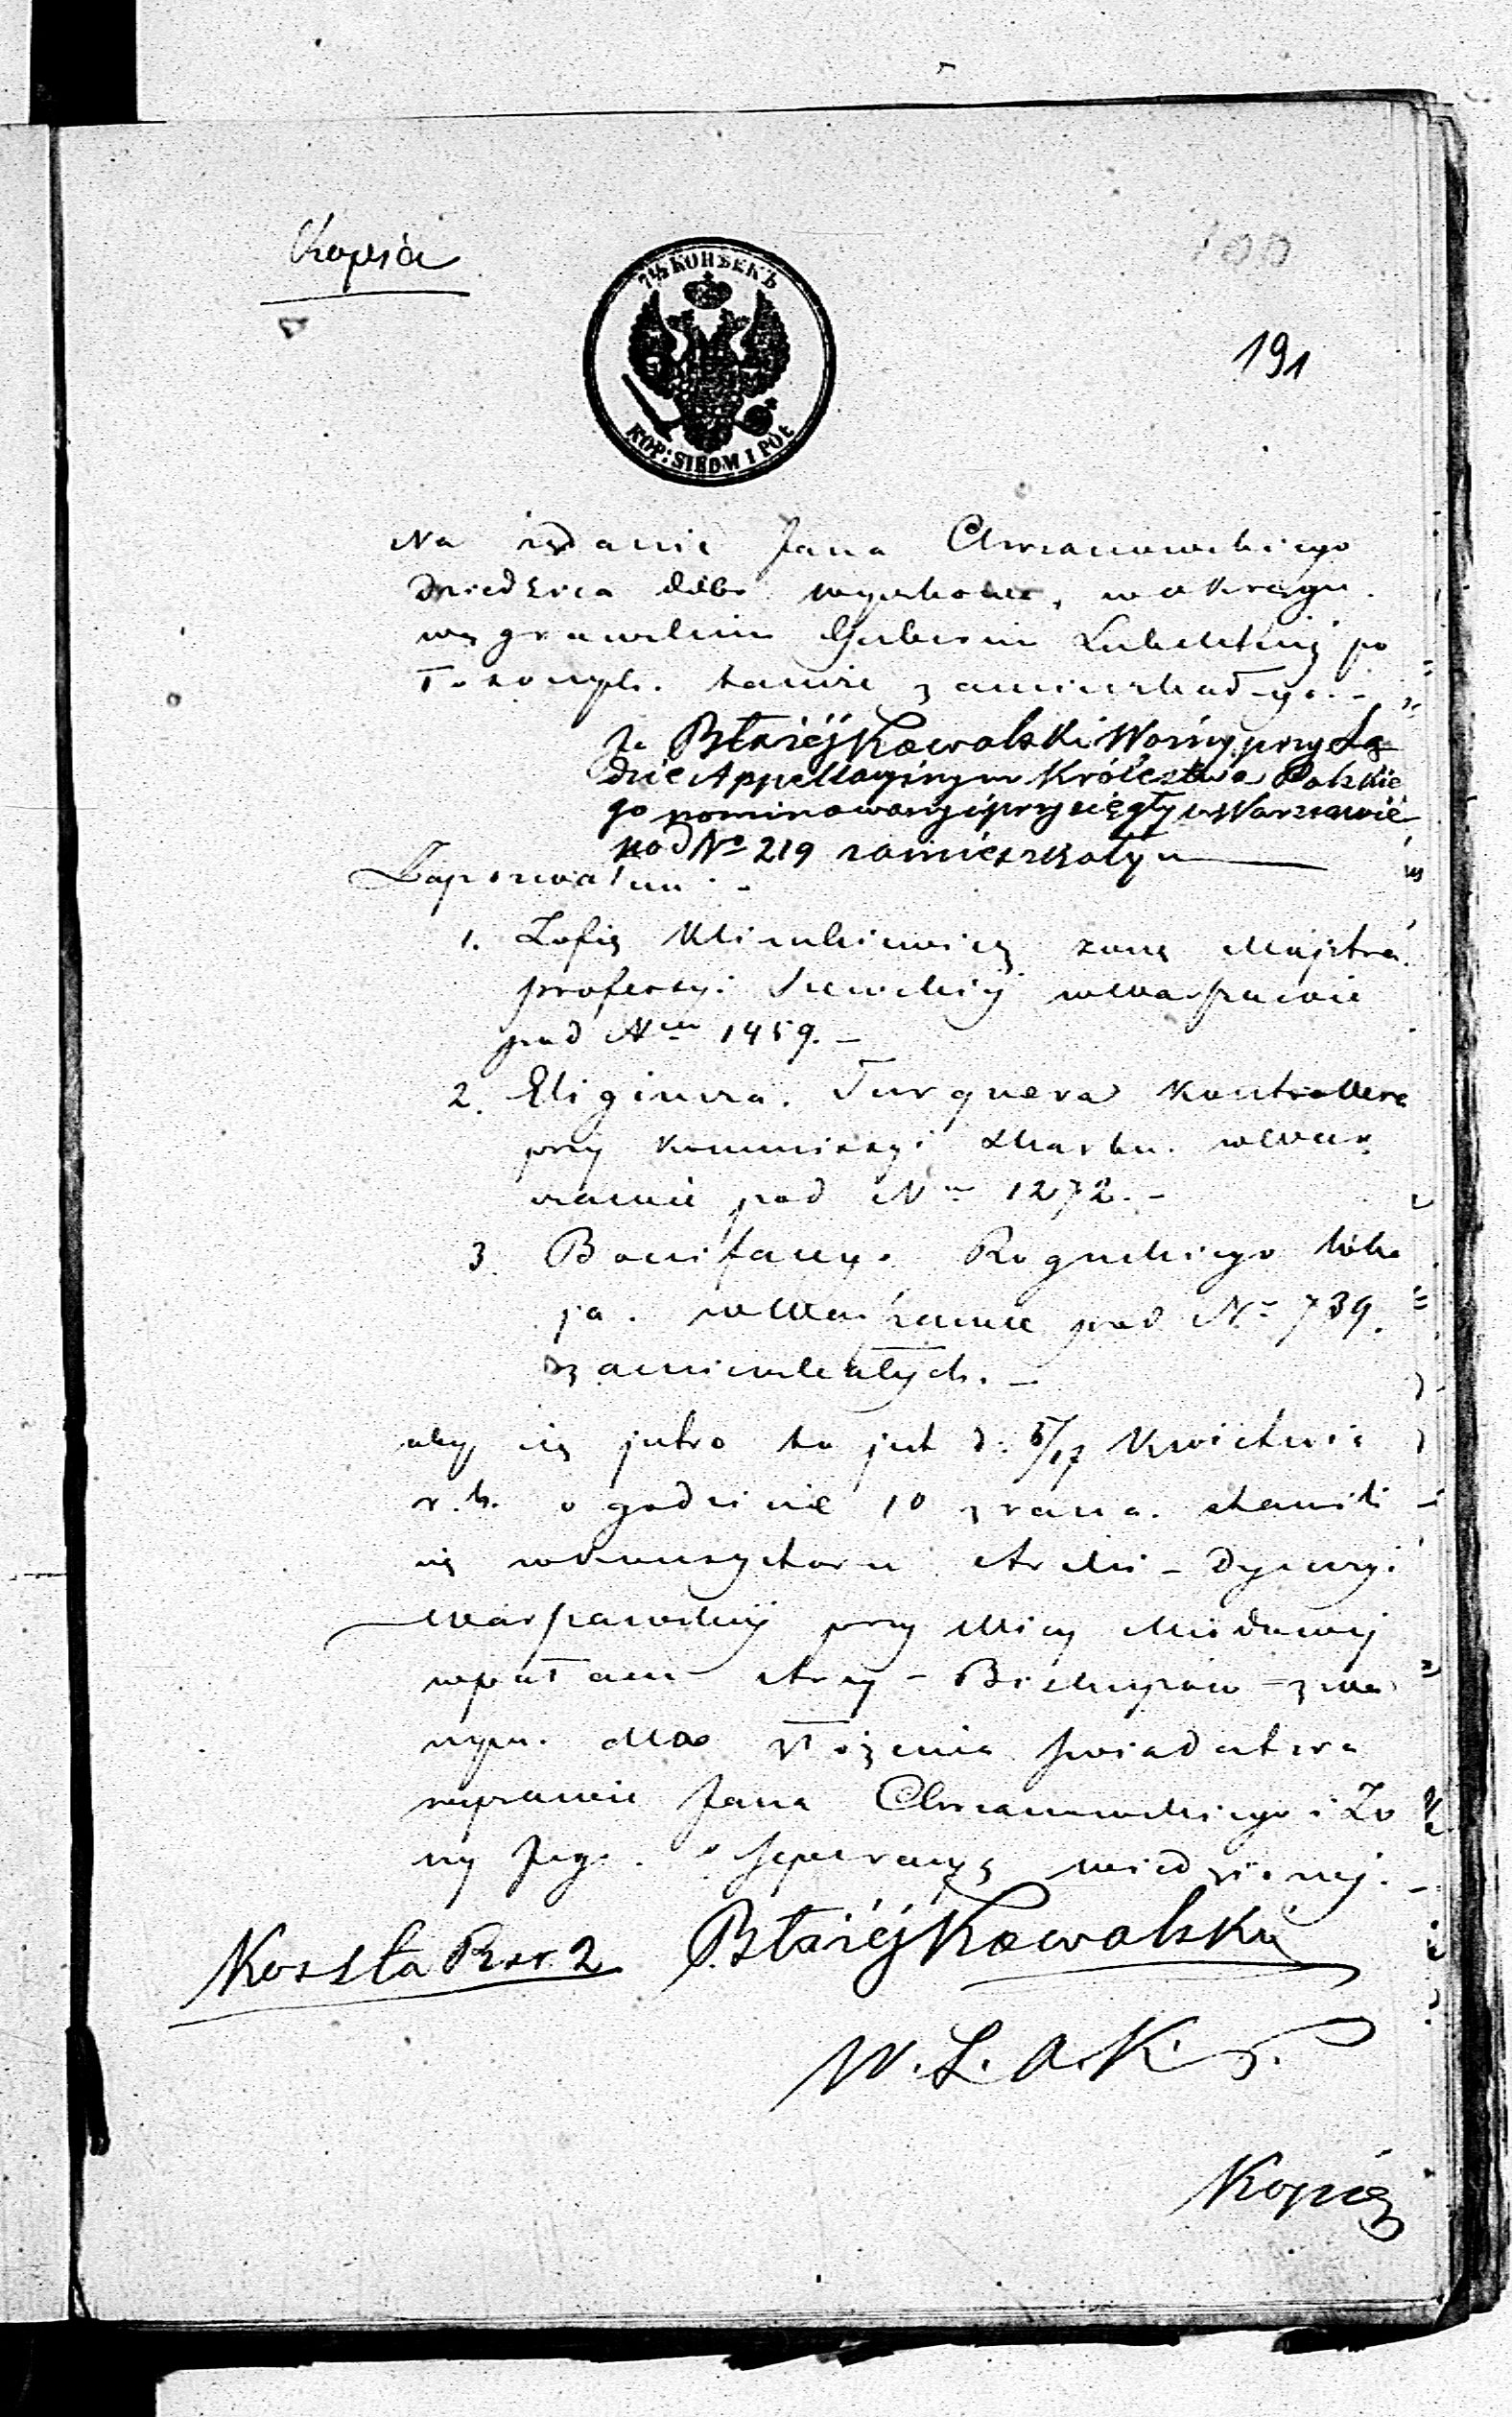 Kopia
7½ КОПѢЕКЪ
KOP: SIEDM I PÓŁ
100
191
Na żądanie Jana Chrzanowskiego
Dziedzica dóbr w okręgu
węgrowskim Gubernii Lubelskiej po
łożonych. tamże zamieszkałego. -
Ja Błażéj Kowalski Woźny przy Są
dzie Appellacyjnym Królestwa Polskie
go nominowany i przysięgły w Warszawie
pod No 219 zamieszkały
Zapozwałem -
1. Zofią żonę Majstra
professyi Szewckiéj w Warszawie
pod Nem 1459. -
2. Eligiusza Turquera Kontrollera
przy Kommissyi Skarbu. w War
szawie pod Nem 1272. -
3. Bonifacego Roguckiego loka
ja. w Warszawie pod No 739.
zamieszkałych. -
aby się jutro to jest d. 5/17 Kwietnia
r.b. o godzinie 10 z rana. stawili
się w Konsystorzu Archi-Dyecezyi
Warszawskiéj przy Ulicy Miodowéj
w pałacu Arcy-Biskupów zwa
nym. dla złożenia świadectwa
w sprawie Jana Chrzanowskiego i Żo
ny Jego. o separacyą wiedzionej. -
Koszta Rsr. 2 Błażéj Kowalski
W. S. A. K. P.
Kopią